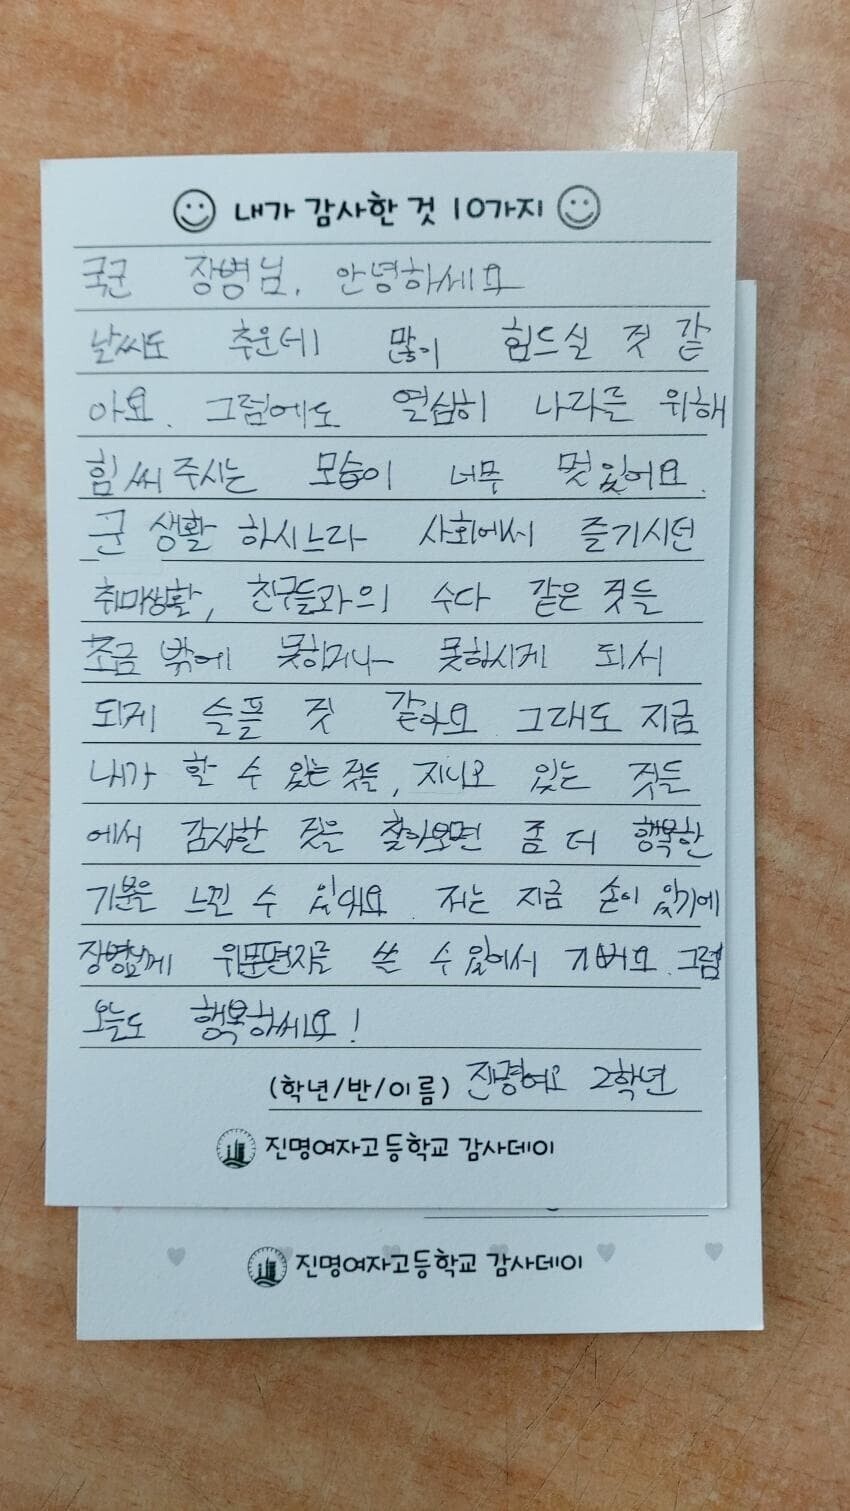 내가 감사한 것 10가지
국군 장병님, 안녕하세요
날씨도 추운데 많이 힘드실 것 같
아요. 그럼에도 열심히 나라를 위해
힘써주시는 모습이 너무 멋있어요.
군 생활 하시느라 사회에서 즐기시던
취미생활, 친구들과의 수다 같은 것들
조금 밖에 못하거나 못하시게 되서
되게 슬플 것 같아요 그래도 지금
내가 할 수 있는 것들, 지니고 있는 것들
에서 감사한 것을 찾아보면 좀 더 행복한
기분을 느낄 수 있대요. 저는 지금 손이 있기에
장병님께 위문편지를 쓸 수 있어서 기뻐요. 그럼
오늘도 행복하세요!
(학년/반/이름) 진명여고 2학년
진명여자고등학교 감사데이
진명여자고등학교 감사데이